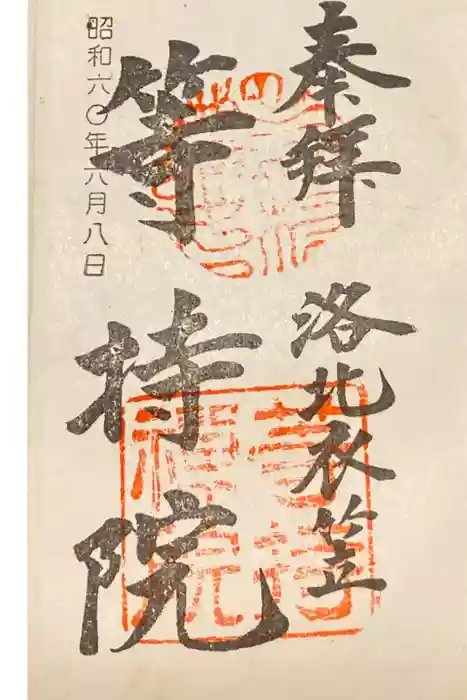 奉拝
洛北衣笠
等持院
昭和六〇年六月八日